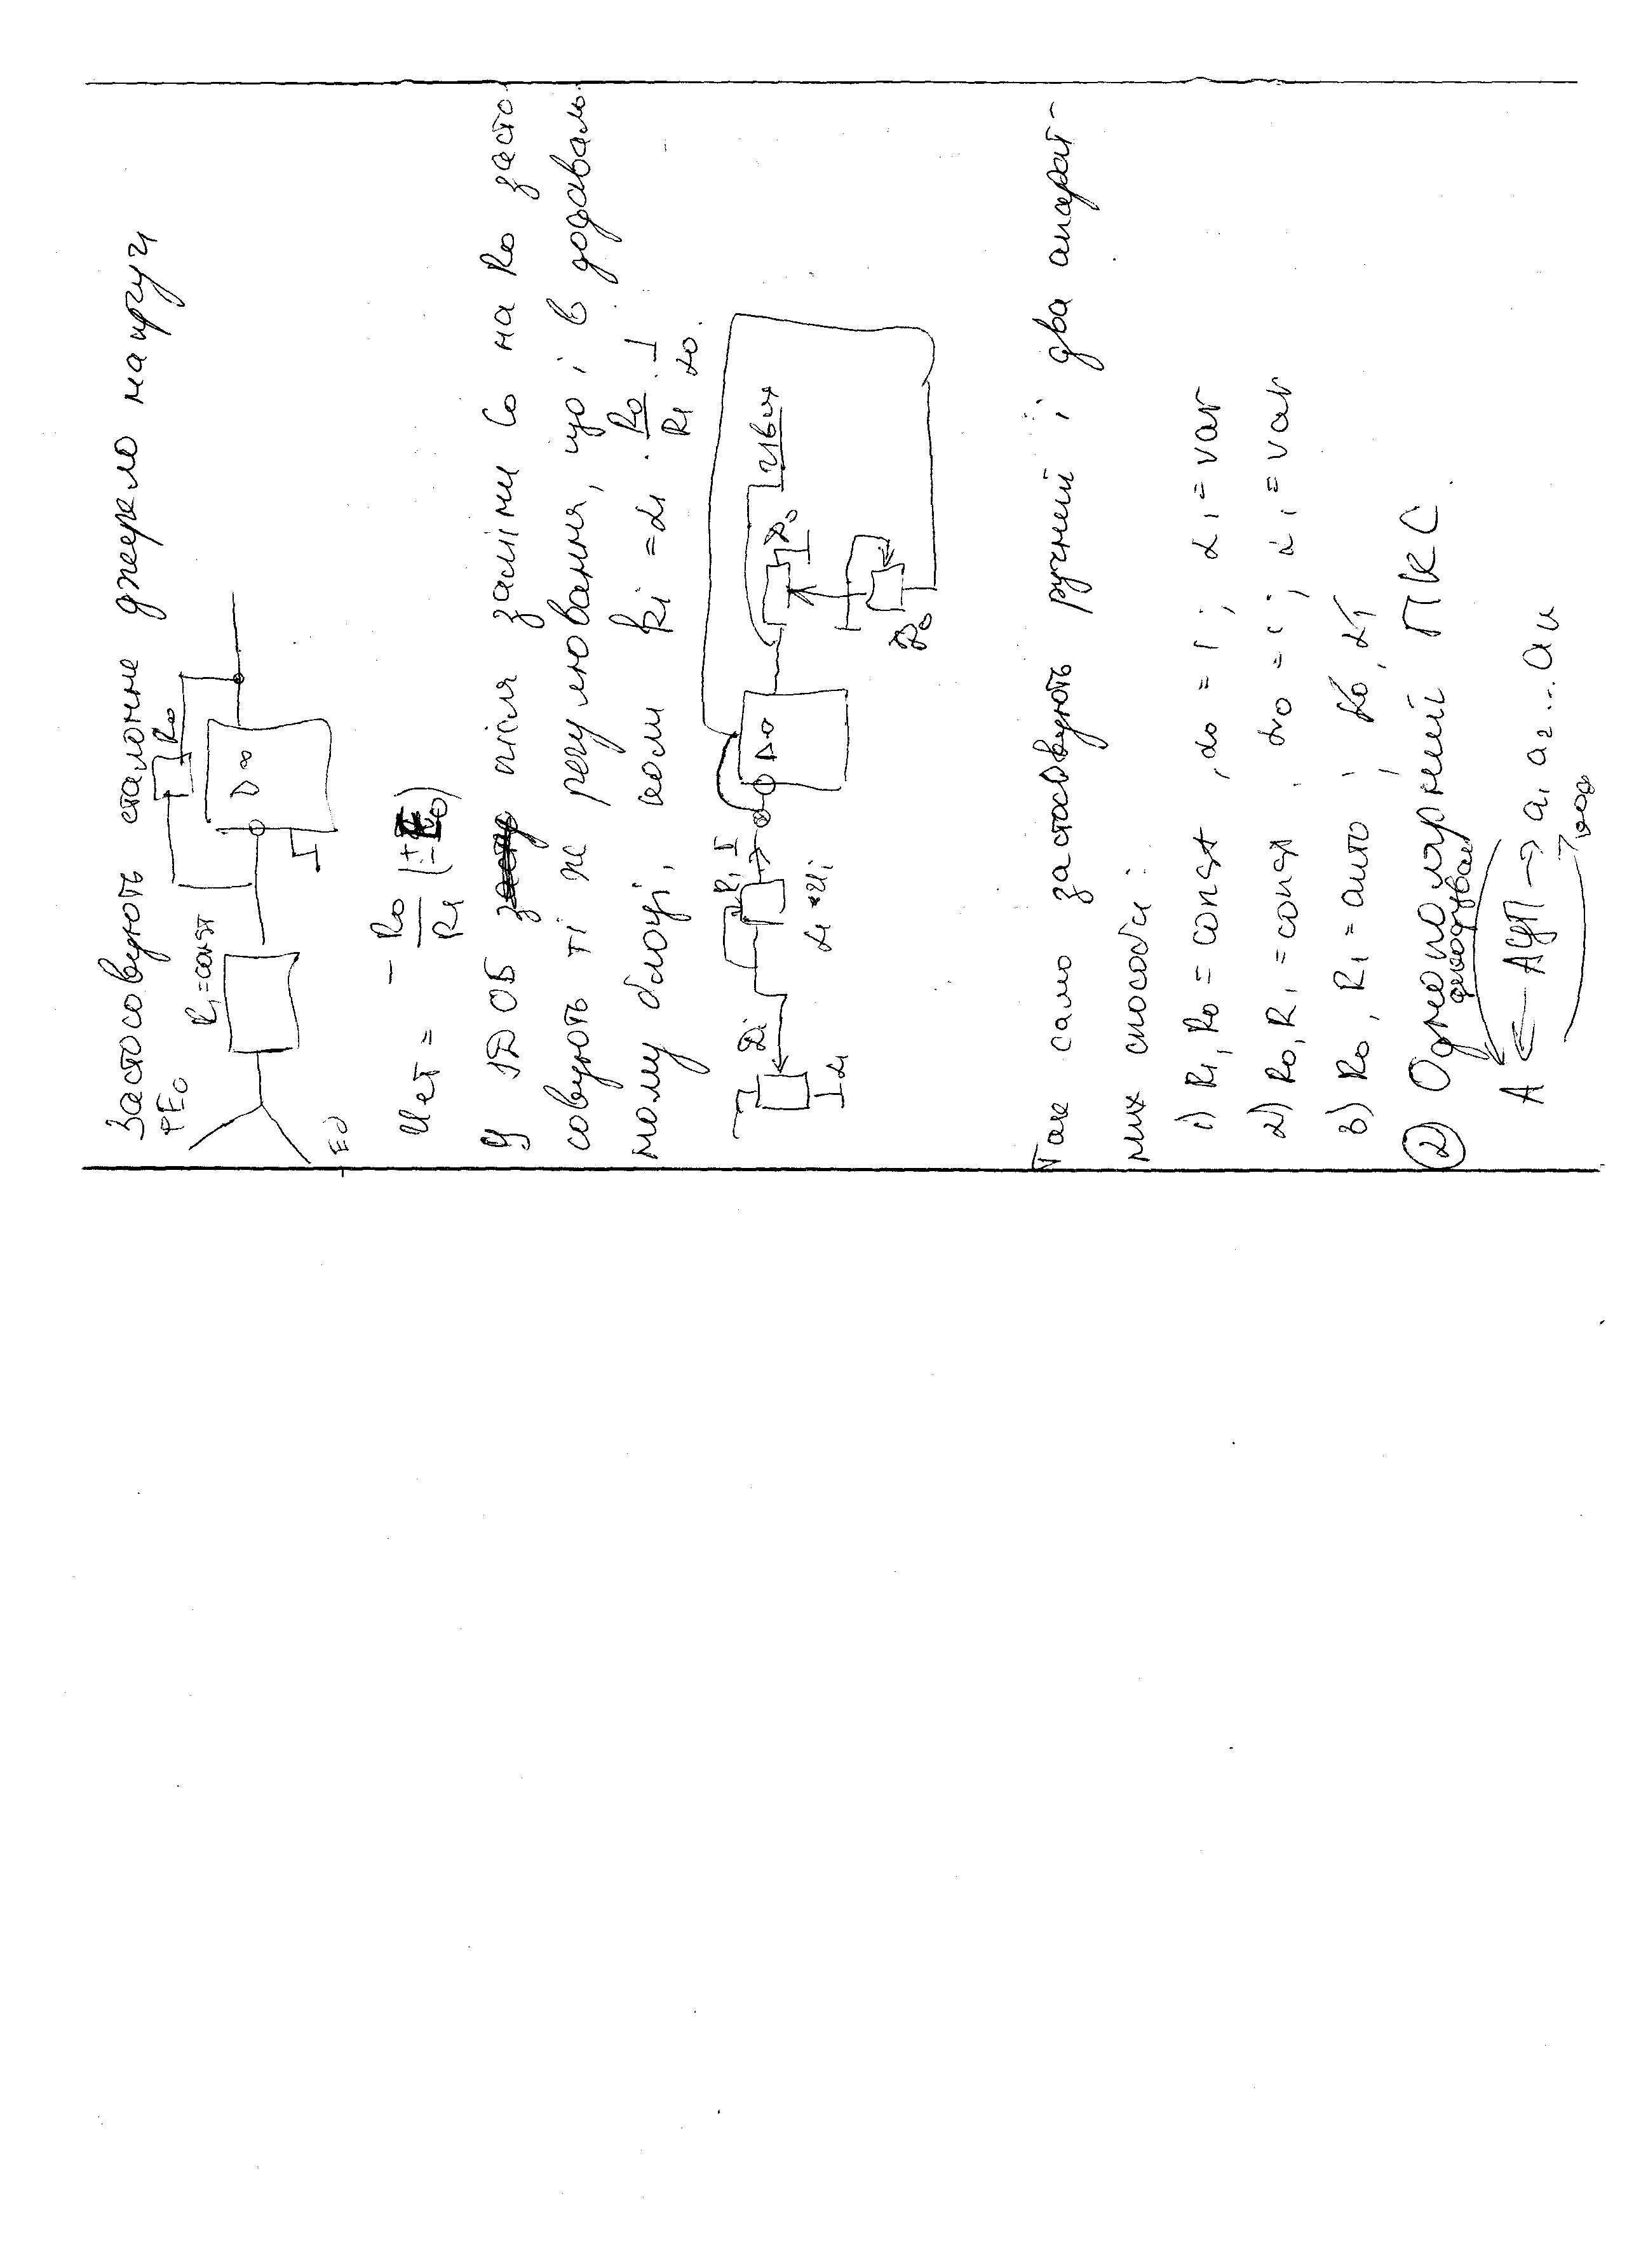 Застосовують еталонне джерело напруги
R₁=const
R₀
+E₀
D∞
E₀
Uет = - R₀/R₁ (±E₀)
У ІДОБ після заміни C₀ на R₀ засто-
совують ті ж регулювання, що і в додаваль-
ному блоці, коли ki = α₁ · R₀/R₁ · 1/α₀.
Di
R₁
I
D∞
D₀
Uвих
α₁
α₁*Ui
D₀
Так само застосовують ручний і два апарат-
них способи:
1) R₁, R₀ = const, α₀ = 1; α₁ = var
2) R₀, R₁ = const, α₀ = 1; α₁ = var
3) R₀, R₁ = auto; α₀, α₁
② Однополярний ПКС
A ← АЦП → a₁ a₂...aₙ
код